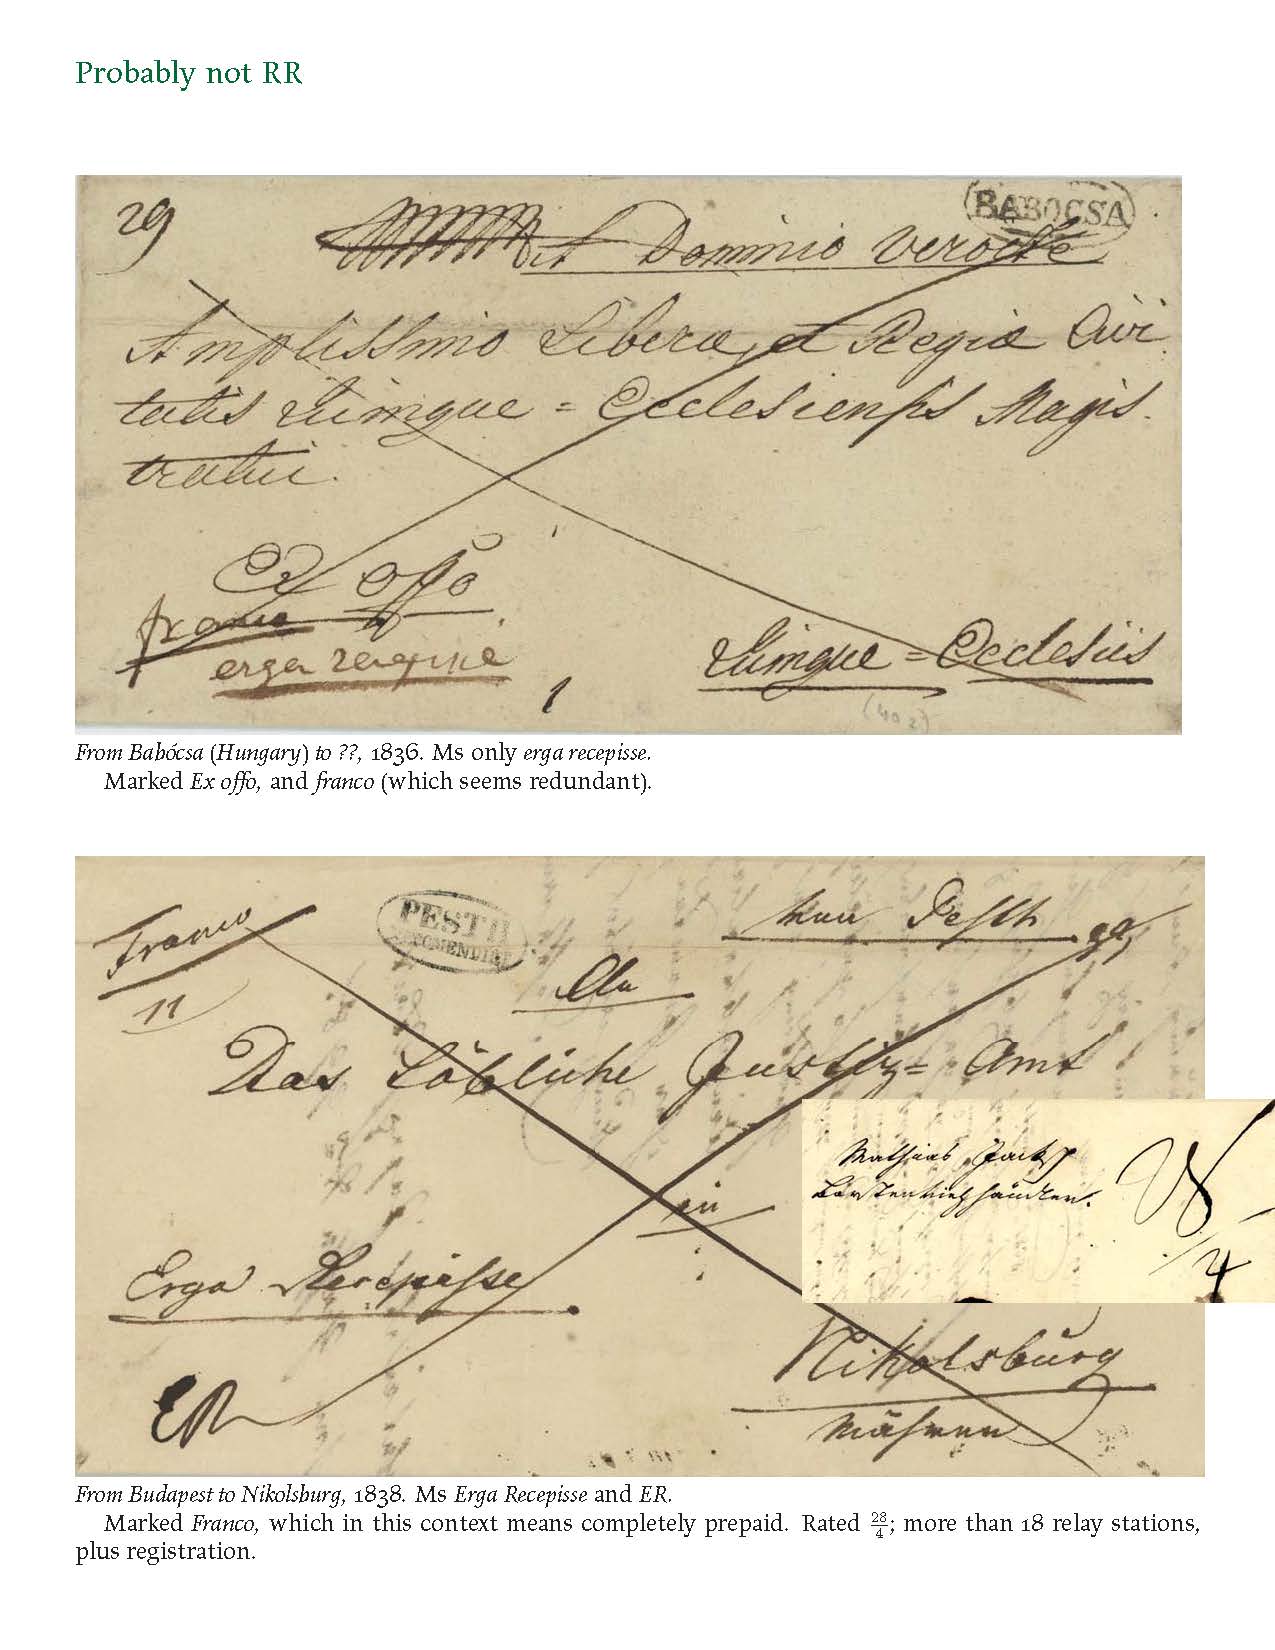 Probably not RR
29
BABOCSA
A Dominio Verocze
Amplissimo Liberæ, et Regiæ Civi
tatis Quinque = Ecclesiensis Magis.
tratui.
Ex offo
franco
erga recepisse
Quinque = Ecclesiis
1
(40 2)
From Babócsa (Hungary) to ??, 1836. Ms only erga recepisse.
Marked Ex offo, and franco (which seems redundant).
Franco
PESTH
RECOMENDIRT
von Pesth
11
An
Das Löbliche Justiz= Amt
in
Mathias
Erga Recepisse
4
Nikolsburg
ER
Mähren
From Budapest to Nikolsburg, 1838. Ms Erga Recepisse and ER.
Marked Franco, which in this context means completely prepaid. Rated 28/4; more than 18 relay stations,
plus registration.